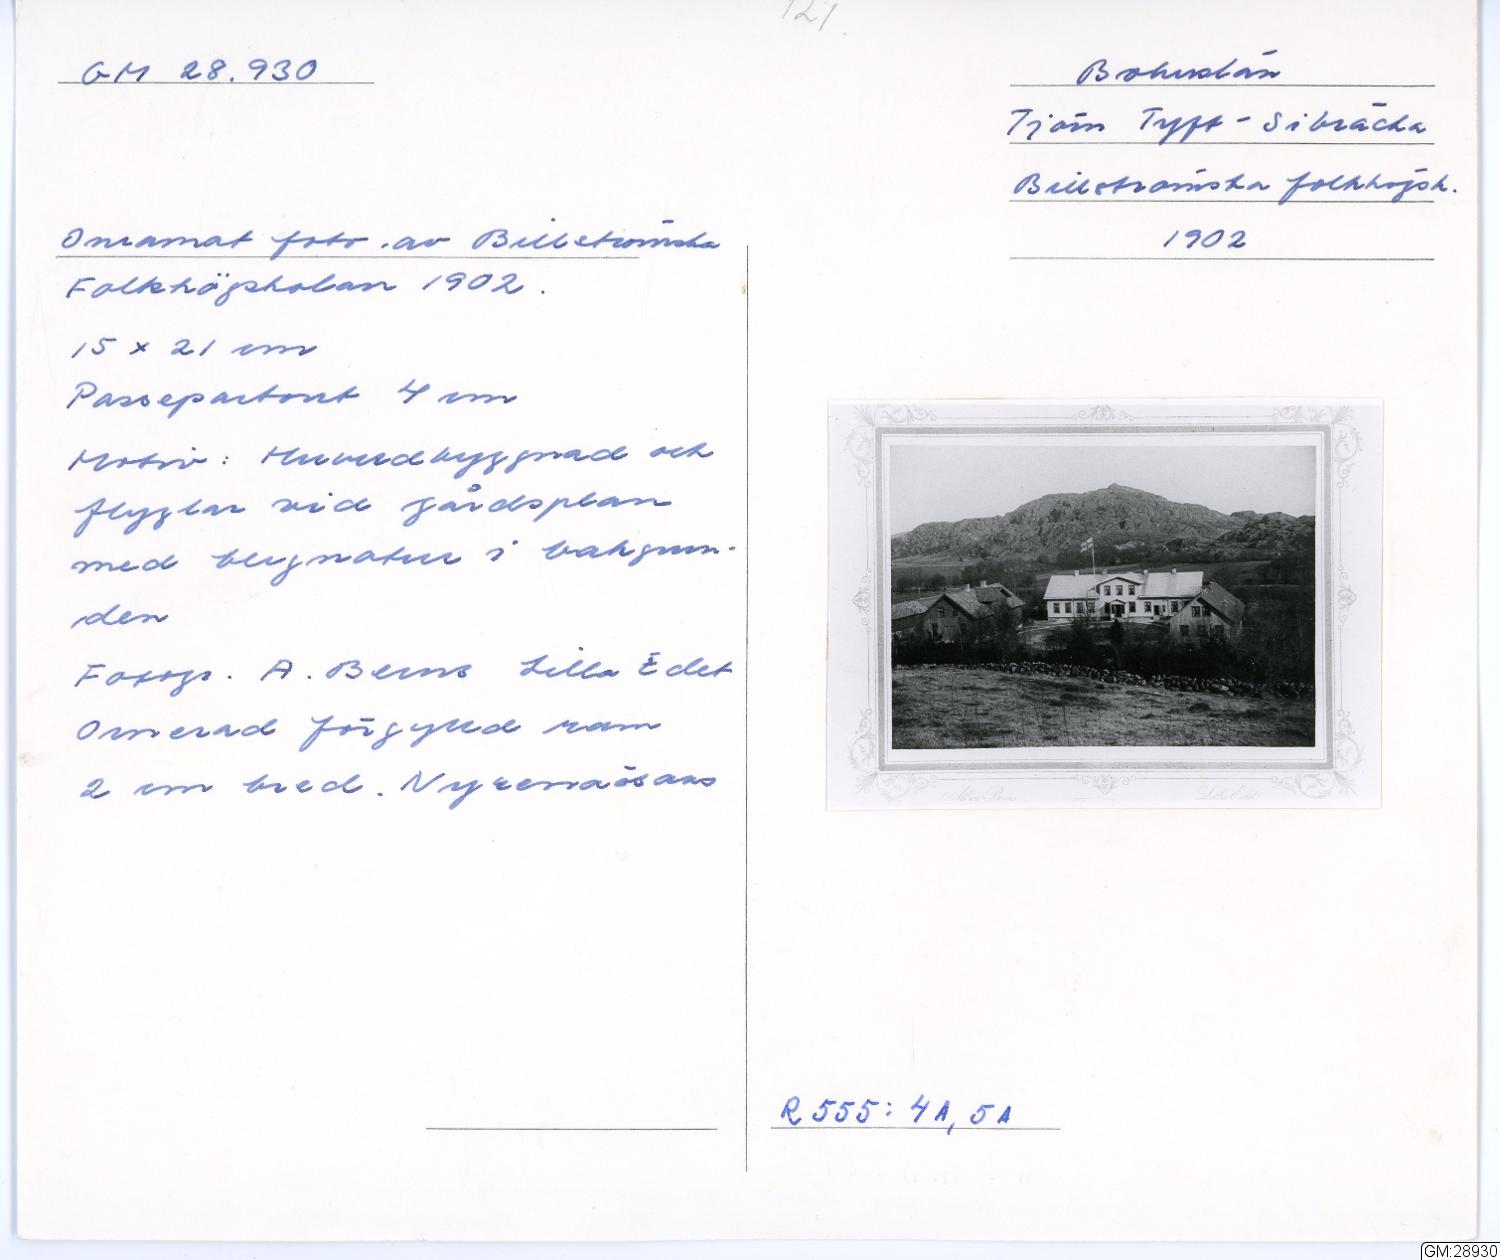 121
GM 28.930
Bohuslän
Tjörn Tyft - Sibräcka
Billströmska folkhögsk.
1902
Inramat foto av Billströmska
Folkhögskolan 1902.
15 x 21 cm
Passepartout 4 cm
Motiv: Huvudbyggnad och
flyglar vid gårdsplan
med bergnatur i bakgrun-
den
Fotogr. A. Berns Lilla Edet
Ornerad förgylld ram
2 cm bred. Nyrenässans
Lilla Edet
R 555: 4A, 5A
GM:28930